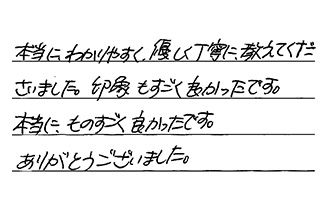 本当に、わかりやすく、優しく丁寧に、教えてくだ
さいました。印象もすごく良かったです。
本当に、ものすごく良かったです。
ありがとうございました。